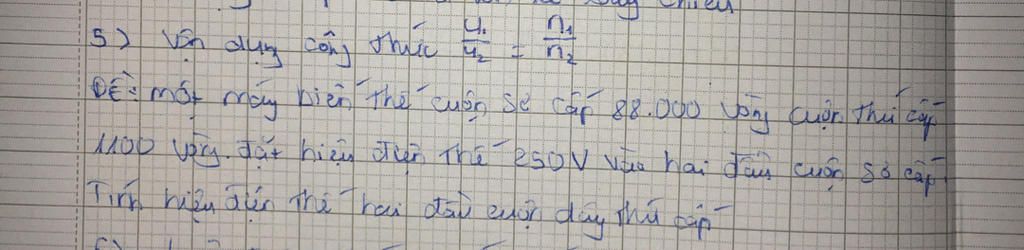 xoay chiều
5) Vận dụng công thức U₁/U₂ = n₁/n₂
ĐỀ: một máy biến thế cuộn sơ cấp 88.000 vòng cuộn thứ cấp
1100 vòng. đặt hiệu điện thế 250V vào hai đầu cuộn sơ cấp
Tính hiệu điện thế hai đầu cuộn dây thứ cấp